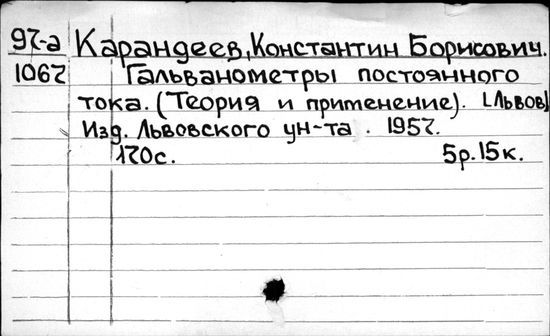 97-а Карандеев, Константин Борисович.
1067 Гальванометры постоянного
тока. (Теория и применение). [Львов]
Изд. Львовского ун-та. 1957.
170с. 5р.15к.